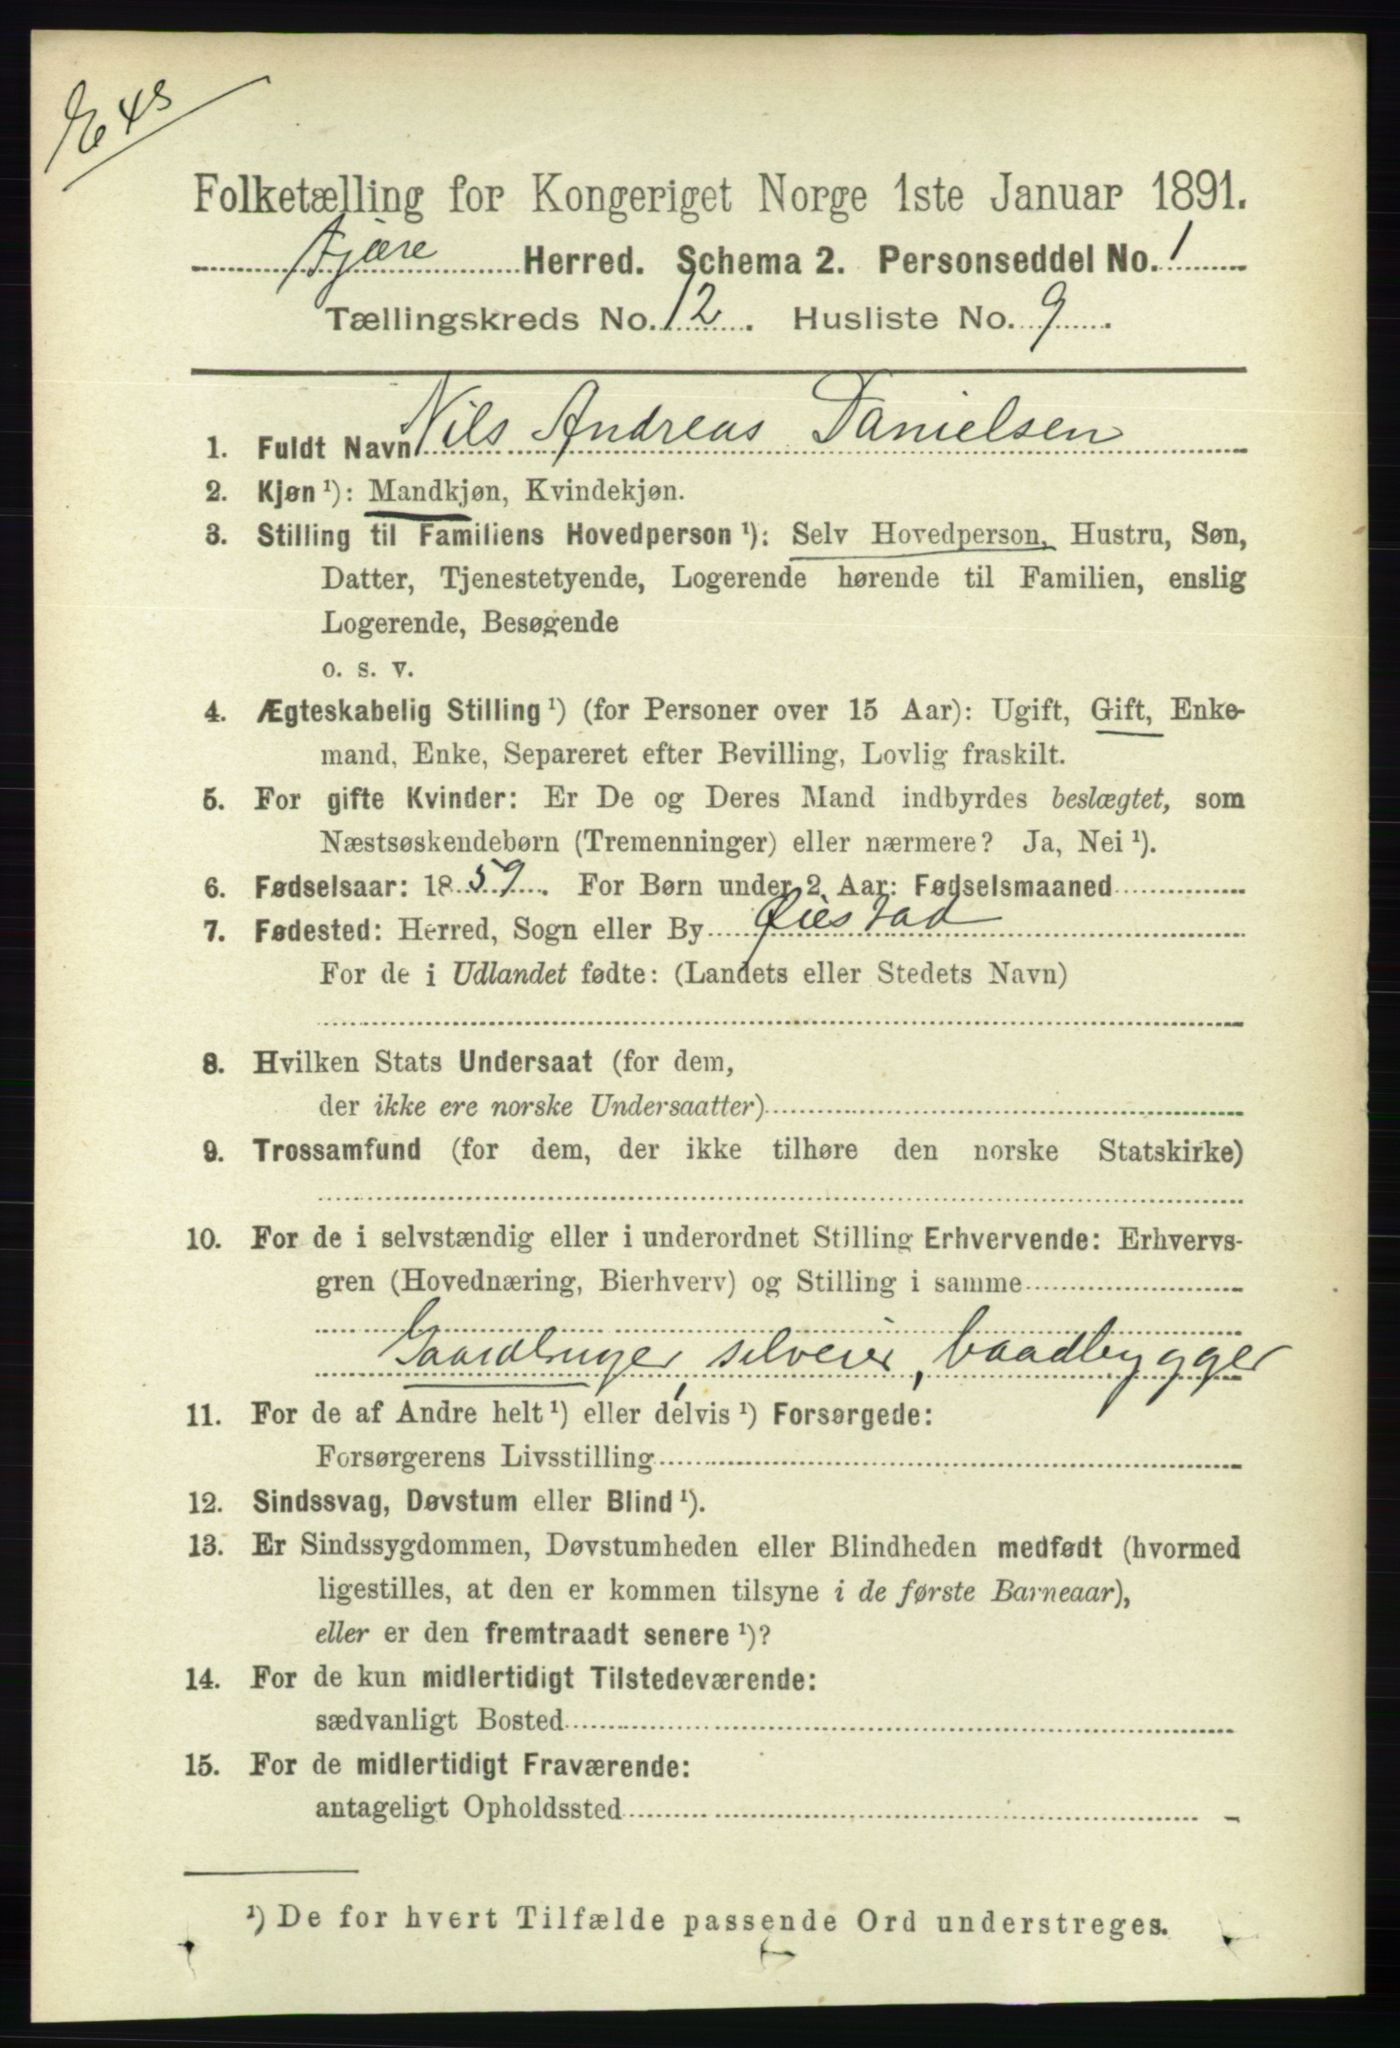 E 48
Folketælling for Kongeriget Norge 1ste Januar 1891.
Fjære Herred. Schema 2. Personseddel No. 1
Tællingskreds No. 12. Husliste No. 9.
1. Fuldt Navn Nils Andreas Danielsen
2. Kjøn ¹): Mandkjøn, Kvindekjøn.
3. Stilling til Familiens Hovedperson ¹): Selv Hovedperson, Hustru, Søn,
Datter, Tjenestetyende, Logerende hørende til Familien, enslig
Logerende, Besøgende
o. s. v.
4. Ægteskabelig Stilling ¹) (for Personer over 15 Aar): Ugift, Gift, Enke-
mand, Enke, Separeret efter Bevilling, Lovlig fraskilt.
5. For gifte Kvinder: Er De og Deres Mand indbyrdes beslægtet, som
Næstsøskendebørn (Tremenninger) eller nærmere? Ja, Nei ¹).
6. Fødselsaar: 1859. For Børn under 2 Aar: Fødselsmaaned
7. Fødested: Herred, Sogn eller By Øiestad
For de i Udlandet fødte: (Landets eller Stedets Navn)
8. Hvilken Stats Undersaat (for dem,
der ikke ere norske Undersaatter)
9. Trossamfund (for dem, der ikke tilhøre den norske Statskirke)
10. For de i selvstændig eller i underordnet Stilling Erhvervende: Erhvervs-
gren (Hovednæring, Bierhverv) og Stilling i samme
Gaardbruger, selveier, baadbygger
11. For de af Andre helt ¹) eller delvis ¹) Forsørgede:
Forsørgerens Livsstilling
12. Sindssvag, Døvstum eller Blind ¹).
13. Er Sindssygdommen, Døvstumheden eller Blindheden medfødt (hvormed
ligestilles, at den er kommen tilsyne i de første Barneaar),
eller er den fremtraadt senere ¹)?
14. For de kun midlertidigt Tilstedeværende:
sædvanligt Bosted
15. For de midlertidigt Fraværende:
antageligt Opholdssted
¹) De for hvert Tilfælde passende Ord understreges.